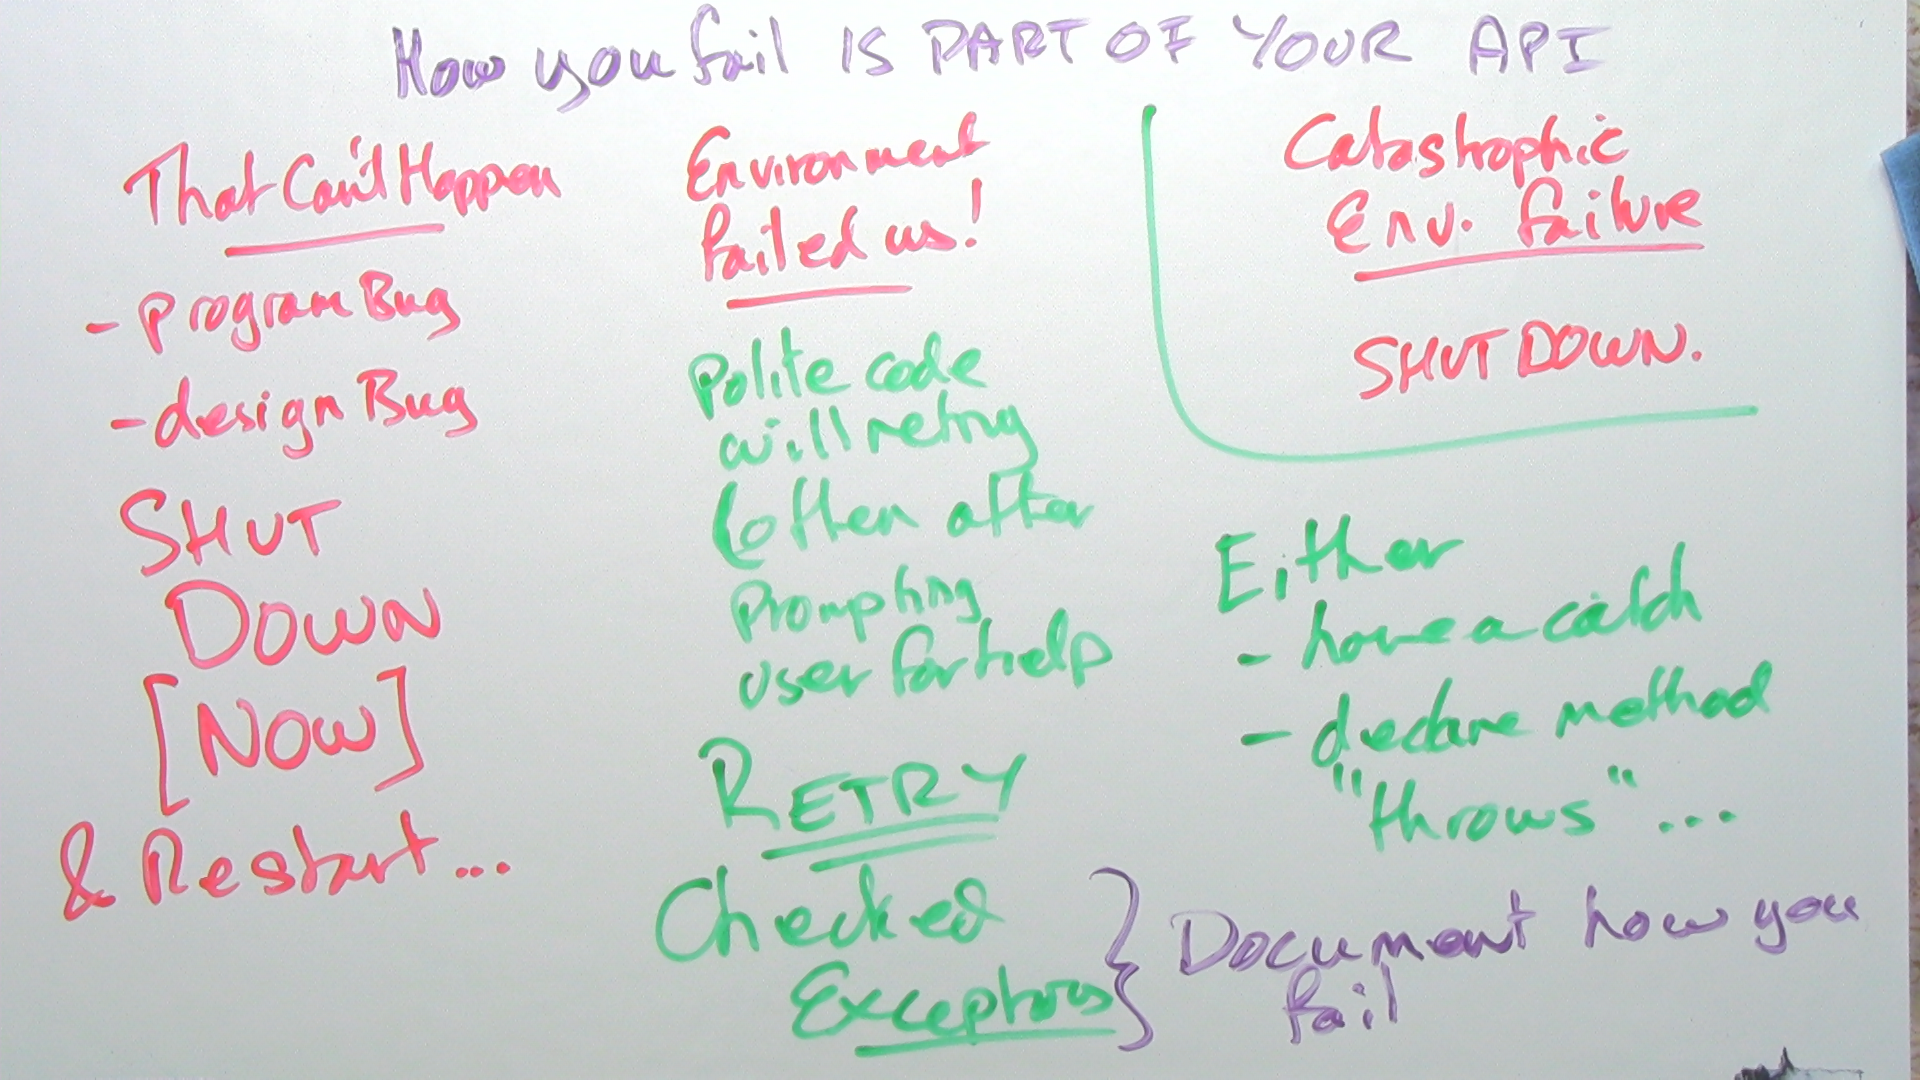 How you fail IS PART OF YOUR API
That Can't Happen
- program Bug
- design Bug
SHUT
DOWN
[NOW]
& Restart...
Environment
failed us!
Polite code
will retry
(often after
Prompting
user for help
RETRY
Checked
Exceptions
Catastrophic
Env. failure
SHUT DOWN.
Either
- have a catch
- declare method
"throws" ...
} Document how you
fail